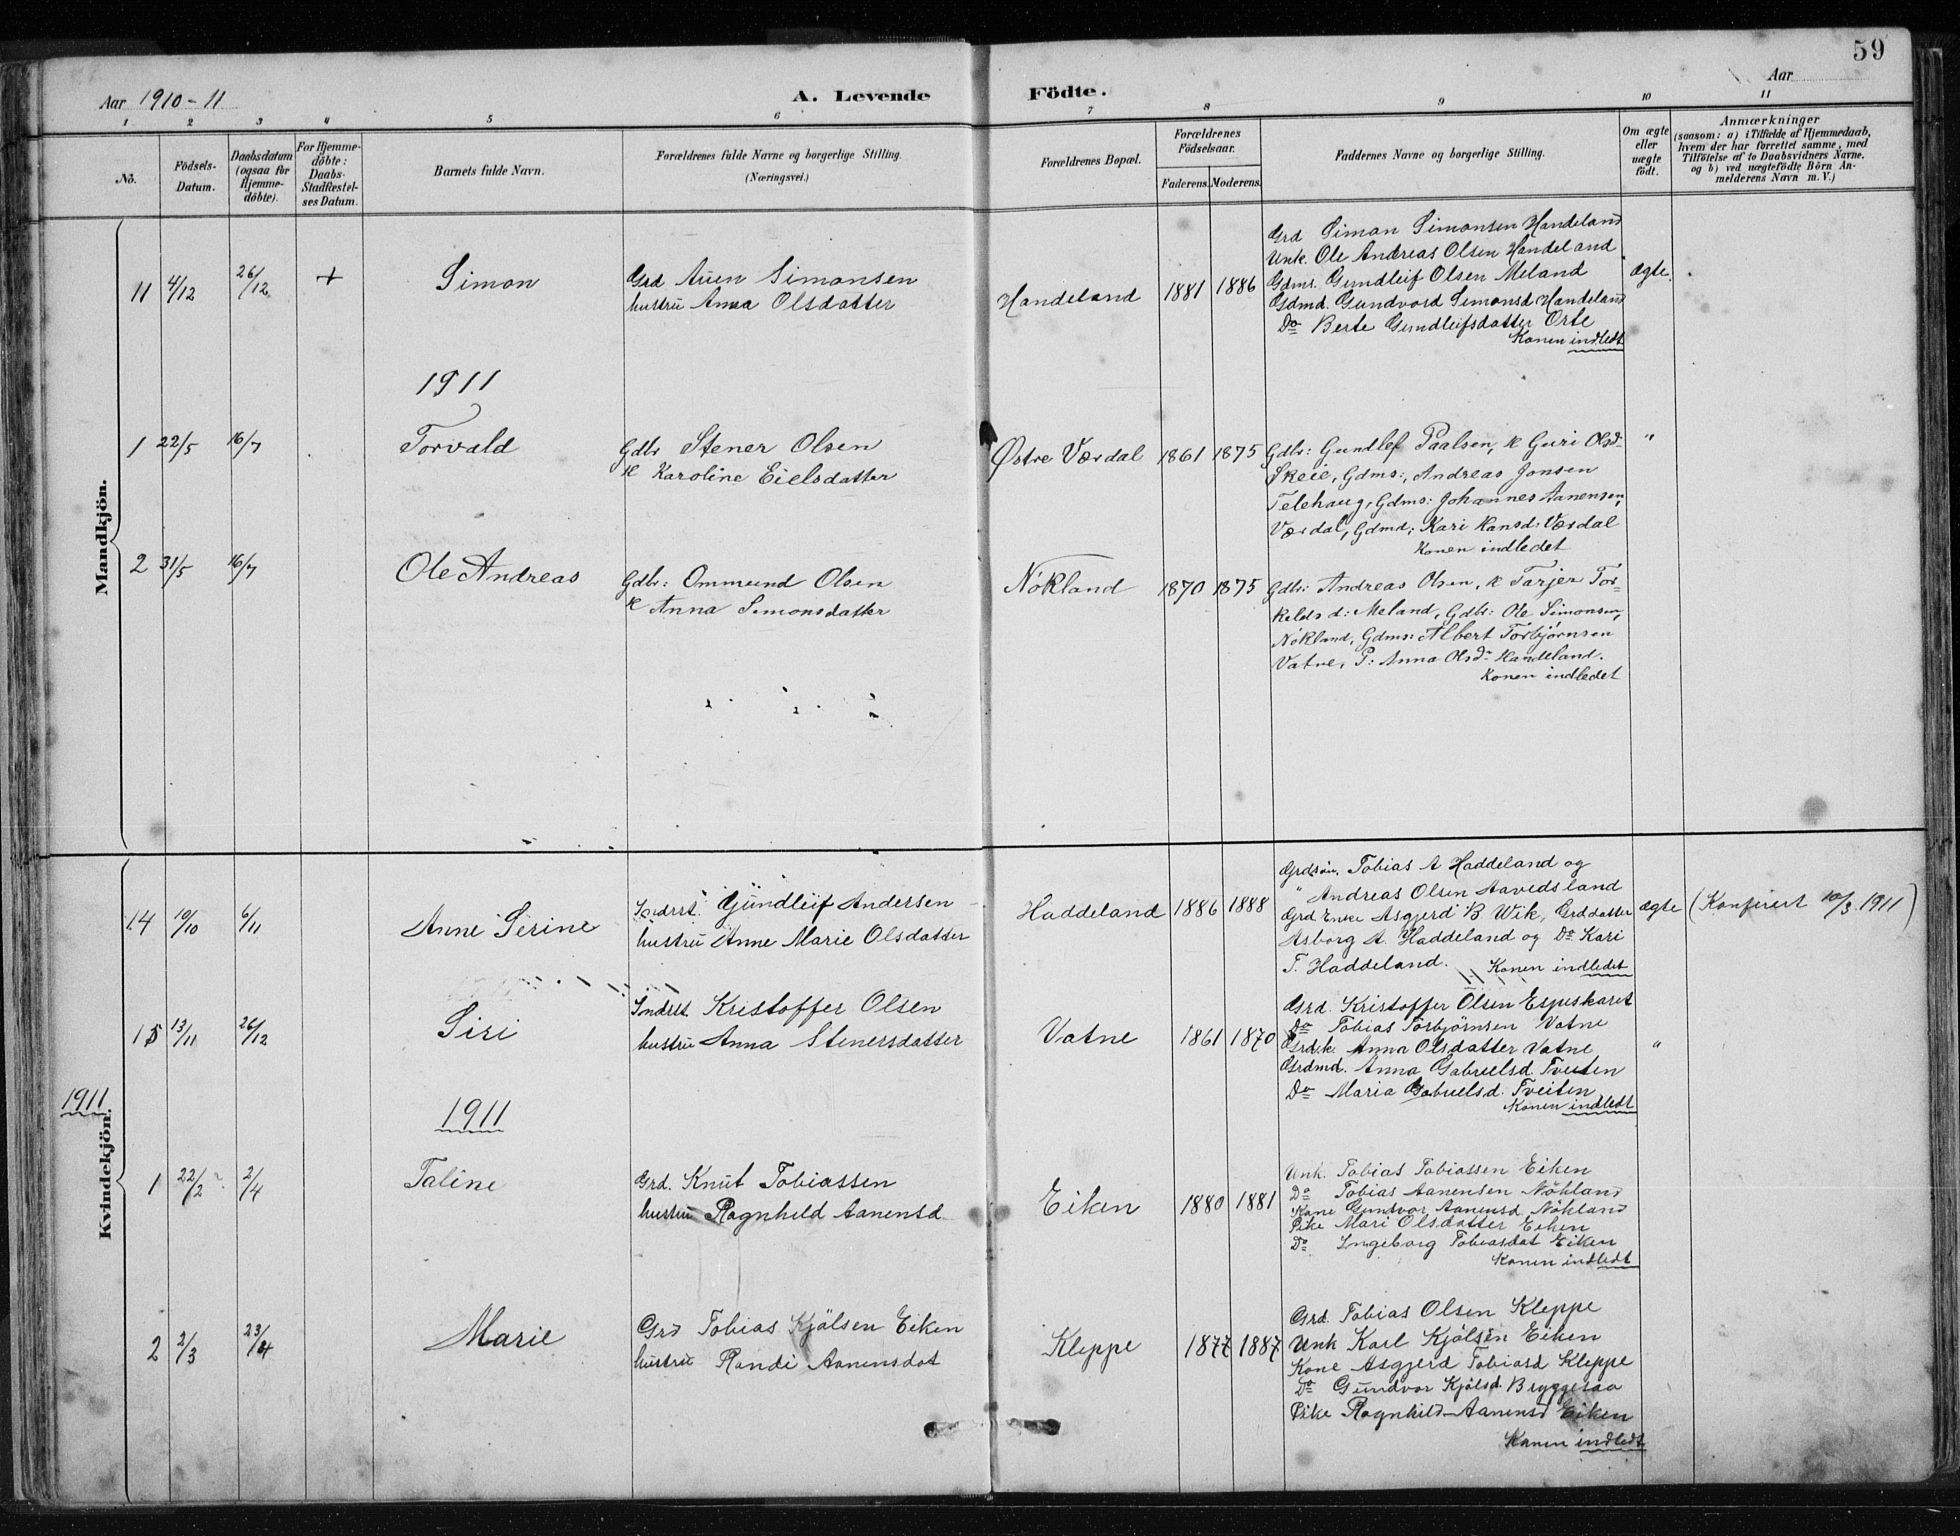 59
Aar 1910-11
A. Levende Födte.
Aar
1 2 3 4 5 6 7 8 9 10 11
No.
Födsels-Datum.
Daabsdatum (ogsaa for Hjemme-döbte).
For Hjemme-döbte: Daabs-Stadfæstel-ses Datum.
Barnets fulde Navn.
Forældrenes fulde Navne og borgerlige Stilling. (Næringsvei.)
Forældrenes Bopæl.
Forældrenes Födselsaar.
Faderens. Moderens.
Faddernes Navne og borgerlige Stilling.
Om ægte eller uægte födt.
Anmærkninger
(saasom: a) i Tilfælde af Hjemmedaab,
hvem der har forrettet samme, med
Tilföielse af to Daabsvidners Navne,
og b) ved uægtefödte Börn An-
melderens Navn m. V.)
Mandkjön.
11 4/12 26/12 + Simon
Grd Auen Simonsen
hustru Anna Olsdatter
Handeland 1881 1886
Grd Simon Simonsen Handeland
Unk. Ole Andreas Olsen Handeland
Gdms. Gundleif Olsen Meland
Gdmd. Gundvord Simonsd Handeland
Do Berte Gundleifsdatter Orte
Konen indledt
ægte.
1911
1 22/5 16/7 Torvald
Gdbr Stener Olsen
K Karoline Eielsdatter
Østre Værdal 1861 1875
Gdbr: Gundlef Paalsen, K Guri Olsd-
Skeie, Gdms:, Andreas Jonsen
Telehaug, Gdms: Johannes Aanensen,
Værdal, Gdmd; Kari Hansd: Værdal
Konen indledet
"
2 31/5 16/7 Ole Andreas
Gdbr: Ommund Olsen
K Anna Simonsdatter
Nökland 1870 1875
Gdbr: Andreas Olsen, K Tarjer Tor-
kelds d: Meland, Gdbr: Ole Simonsen,
Nökland, Gdms: Albert Torbjörnsen
Vatne, P: Anna Olsd- Handeland.
Konen indledet
Kvindekjön.
14 10/10 6/11 Anne Serine
Indrst. Gundleif Andersen
hustru Anne Marie Olsdatter
Haddeland 1886 1888
Grdsön. Tobias A Haddeland og
" Andreas Olsen Aavedsland
Grd Enke Asgjerd B Wik, Grddatter
Asborg A. Haddeland og Do Kari
T. Haddeland. Konen indledet
ægte (Konfirert 10/3 1911)
15 13/11 26/12 Siri
Indrst. Kristoffer Olsen
hustru Anna Stenersdatter
Vatne 1861 1870
Grd. Kristoffer Olsen Espeskaret
Do Tobias Torbjörnsen Vatne
Grdk. Anna Olsdatter Vatne
Grdmd. Anna Gabrielsd. Tveiten
Do Maria Gabrielsd. Tveiten
Konen indledt
"
1911
1911
1 22/2 2/4 Taline
Grd. Knut Tobiassen
hustru Ragnhild Aanensd
Eiken 1880 1881
Unk. Tobias Tobiassen Eiken
Do Tobias Aanensen Nökland
Kone Gundvor Aanensd Nökland
Pike Mari Olsdatter Eiken
Do Ingeborg Tobiasdat Eiken
Konen indledt
2 2/3 23/4 Marie
Grd Tobias Kjölsen Eiken
hustru Randi Aanensdat
Kleppe 1877 1887
Grd. Tobias Olsen Kleppe
Unk Karl Kjölsen Eiken
Kone Asgjerd Tobiasd Kleppe
Do Gundvor Kjölsd. Bryggesaa
Pike Ragnhild Aanensd Eiken
Konen indledt